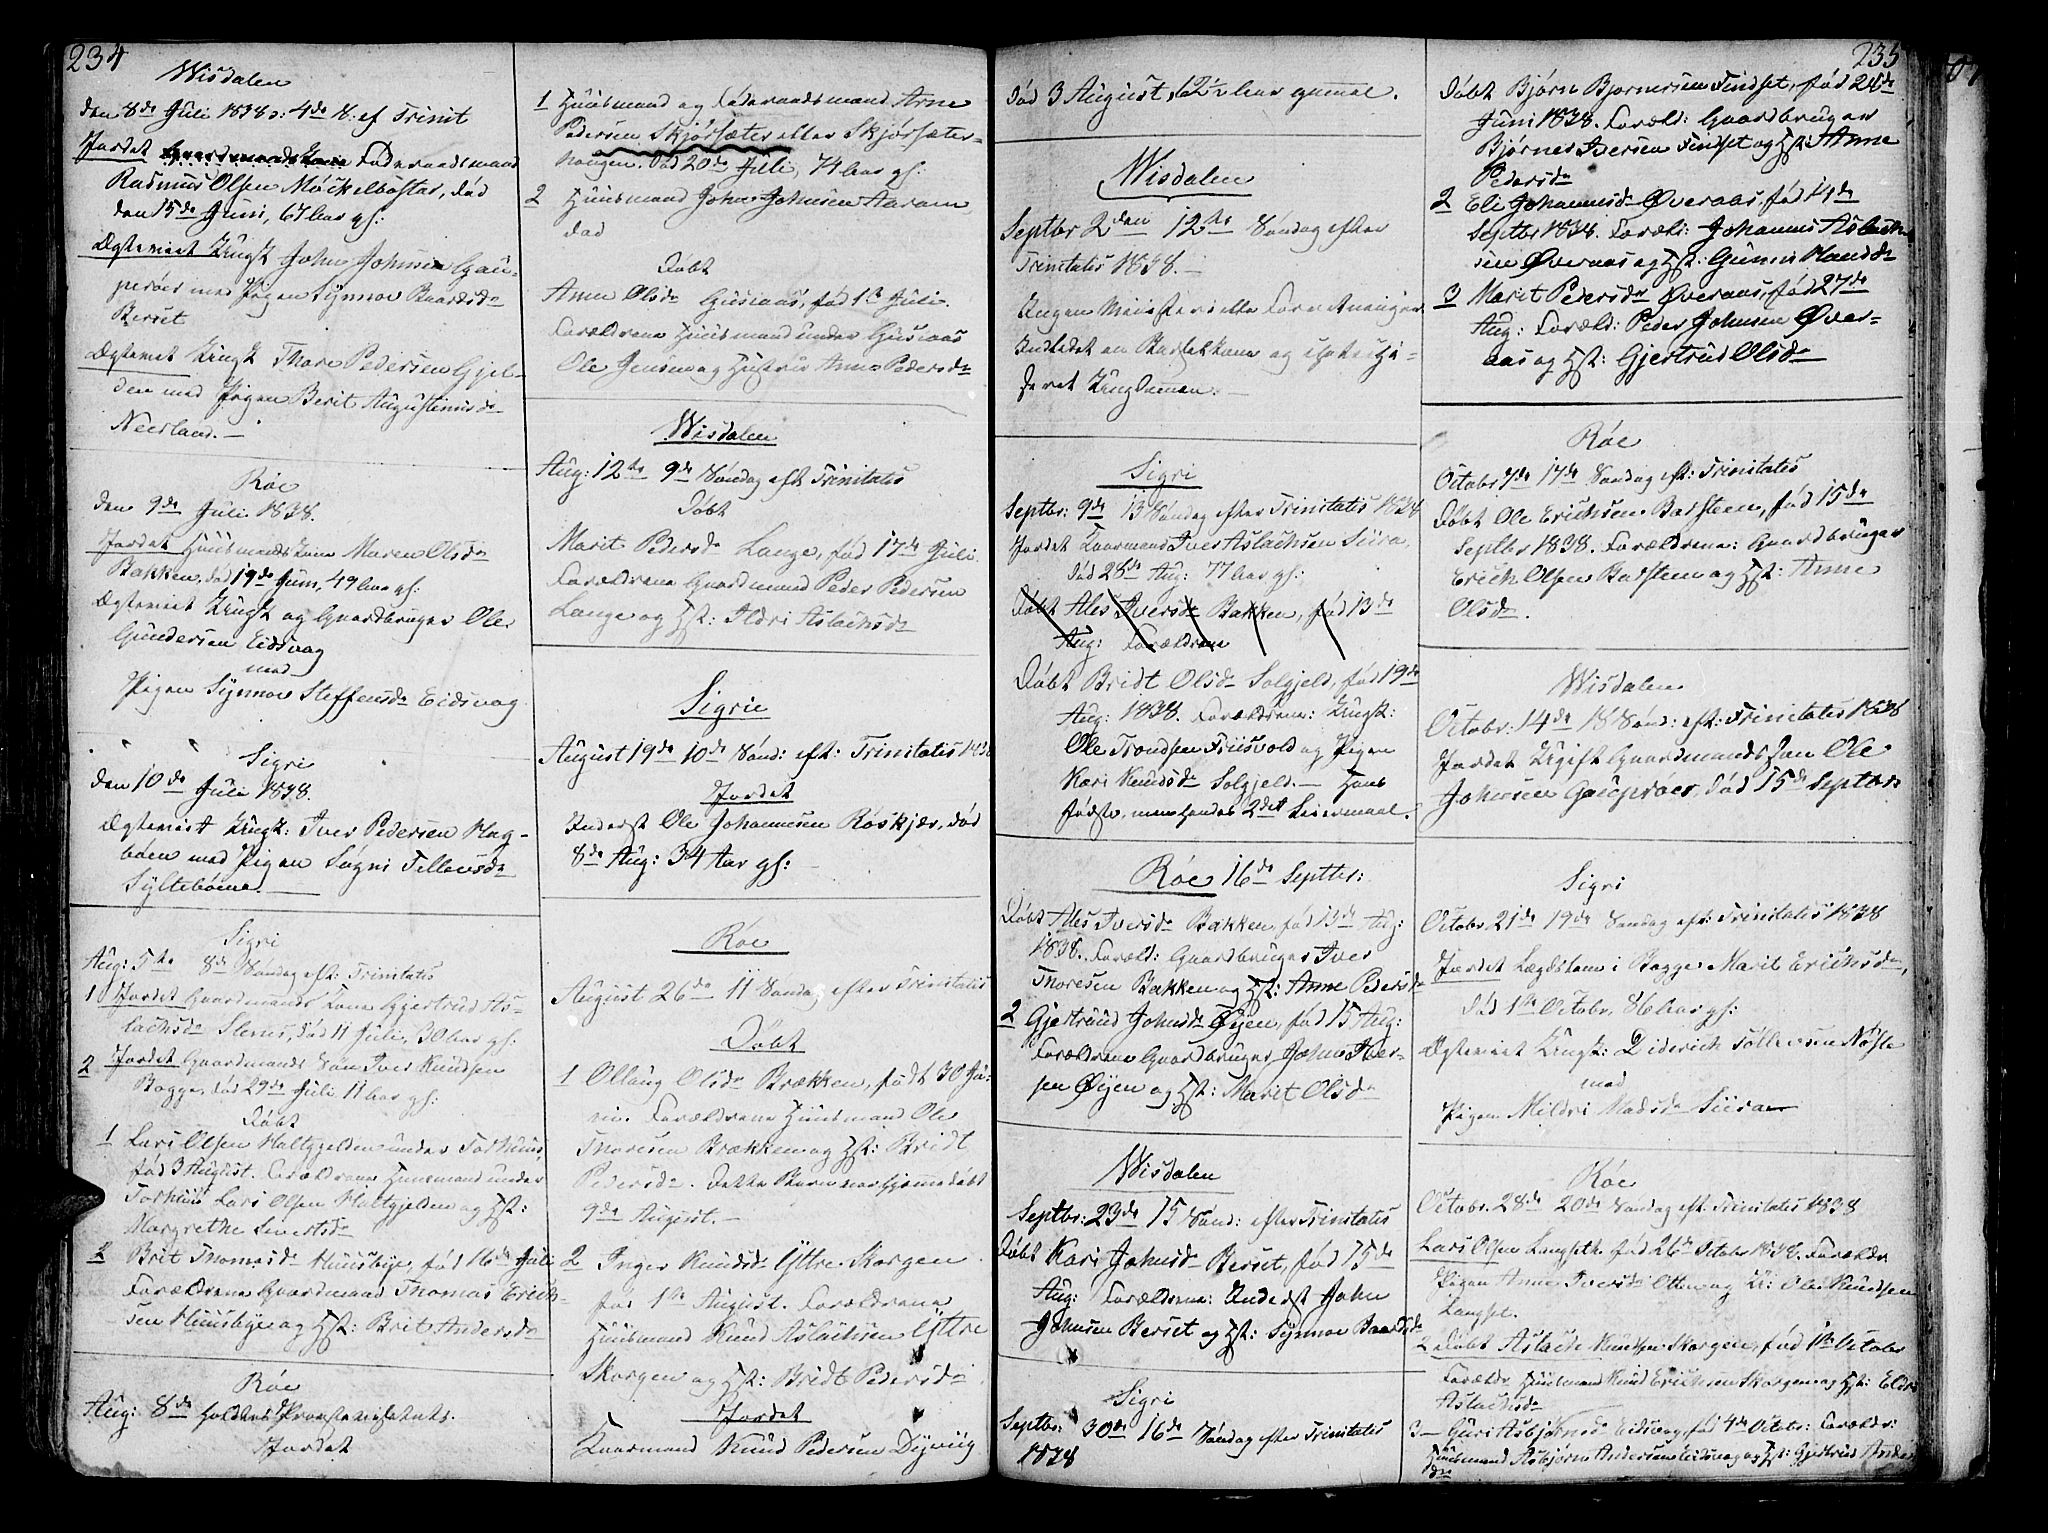 234
Wisdalen
den 8de Juli 1838 o: 4de S. ef Trinit
Jordet Føderaadsmand
Rasmus Olsen Mockelbostar, død
den 15de Juni, 67 aar gl:
Ægteviet Ungk John Johnsen Gau-
prøer med Pigen Synnov Baardsd
Berset
Ægteviet Ungk Thore Pedersen Gjel-
den med Pigen Berit Augustinusd
Neerland. —
Røe
den 9de Juli 1838.
Jordet Huusmands Kone Maren Olsd
Bakken, død 19de Juni, 49 aar gl:
Ægteviet Ungk og Gaardbruger Ole
Gundersen Eidsvag
med
Pigen Synnov Steffensd Eidsvag
Sigri
den 10de Juli 1838.
Ægteviet Ungk: Iver Pedersen Hag-
bøen med Pigen Sogni Tellevsd
Syltebøine. —
Sigri
Aug: 5te 8de Søndag eft: Trinitatis
1 Jordet Gaardmands Kone Gjertrud As-
lachsd Slenes, død 11 Juli, 30 aar gl:
2 Jordet Gaardmands Søn Iver Knudsen
Bogge, død 29de Juli 11 aar gl:
Døbt
1 Lars Olsen Haltgjelden under Torhuus,
fød 3 August. Forældrene Huusmand under
Torhuus Lars Olsen Haltgjelden og Hst:
Margrethe Sivertsd
2 Brit Thomasd Huusbye, fød 16de Juli
Forældrene Gaardmand Thomas Erich-
sen Huusbye og Hst: Brit Andersd
Røe
Aug: 8de holdtes Provstevisitats.
Jordet
1 Huusmand og Føderaadsmand Arne
Pedersen Skjørsæter eller Skjørsæter-
haugen. død 20de Juli, 74 aar gl:
2 Huusmand John Johnsen Aaram,
død
Døbt
Anne Olsd Gusiaas, fød 1ste Juli.
Forældrene Huusmand under Gusiaas
Ole Jensen og Hustrue Anne Pedersd
Wisdalen
Aug: 12te 9de Søndag eft Trinitatis
Døbt
Marit Pedersd Lange, fød 17de Juli
Forældrene Gaardmand Peder Pedersen
Lange og Hst: Ildri Aslachsd
Sigrie
August 19de 10de Sønd: eft: Trinitatis 1838
Jordet
Inderst Ole Johannesen Røskjær, død
8de Aug: 34 Aar gl: —
Røe
August 26de 11 Søndag efter Trinitatis
Døbt
1 Ollaug Olsd Brækken, født 30 Ju-
ni. Forældrene Huusmand Ole
Thoresen Brækken og Hst: Bridt
Pedersd. Dette Barn var hjemmedøbt
9de August. —
2 Inger Knudsd Yttre Skorgen
fød 1ste August. Forældrene
Huusmand Knud Aslachsen Yttre
Skorgen og Hst: Bridt Pedersd
Jordet
Kaarmand Knud Pedersen Dyrviig
død 3 August, 62½ aar gammel.
Wisdalen
Septbr 2den 12te Søndag efter
Trinitatis 1838. —
Ingen Ministerielle Forretninger
Indledet en Barselkone og
Ungdommen. —
Sigri
Septbr: 9de 13 Søndag efter Trinitatis 1838
Jordet Kaarmand Iver Aslachsen Siira,
død 28de Aug: 77 aar gl:
Døbt Ales Iversd Bakken, fød 13de
Aug: Forældrene
Døbt Bridt Olsd Solgjeld, fød 19de
Aug: 1838. Forældrene: Ungk:
Ole Trondsen Friisvold og Pigen
Kari Knudsd Solgjeld. — Hans
første, men hendes 2det Leiermaal.
Røe 16de Septbr:
Døbt Ales Iversd Bakken, fød 13de Aug:
1838. Foræld: Gaardbruger Iver
Thoresen Bakken og Hst: Anne Pedersd
2 Gjertruud Johnsd Øyen, fød 15 Aug:
Forældrene Gaardbruger John Iver-
sen Øyen og Hst: Marit Olsd
Wisdalen
Septbr: 23de 15 Sønd: efter Trinitatis
Døbt Kari Johnsd Berset, fød 15de
Aug: Forældrene: Inderst John
Johnsen Berset og Hst: Synnov Baardsd
Sigri
Septbr: 30de 16de Søndag efter Trinitatis
1838
235
Døbt Bjørn Bjørnersen Tindset, fød 28de
Juni 1838. Foræld: Gaardbruger
Bjørner Iversen Tindset og Hst: Anne
Pedersd
2 Eli Johannesd Øveraas, fød 14de
Septbr 1838. Foræld: Johannes Aslach-
sen Øveraas og Hst: Guner Hansd
3 Marit Pedersd Øveraas, fød 27de
Aug: Foræld: Peder Johnsen Øver-
aas og Hst: Gjertrud Olsd
Røe
Octobr 7de 17de Søndag eft: Trinitatis
Døbt Ole Erichsen Barsteen, fød 15de
Septbr 1838. Forældrene: Gaardbruger
Erich Olsen Barsteen og Hst: Anne
Olsd.
Wisdalen
Octobr: 14de 18 Sønd: eft: Trinitatis 1838
Jordet Ugift Gaardmands Søn Ole
Johnsen Gauprøer, død 15de Septbr:
Sigri
Octobr: 21de 19de Søndag eft: Trinitatis 1838
Jordet Lægdslem i Bogge Marit Erichsd,
død 1ste Octobr, 86 aar gl:
Ægteviet Ungk: Diderich Tollevsen Nøste
med
Pigen Mildri Madsd Siira
Røe
Octobr. 28de 20de Søndag eft: Trinitatis 1838
Lars Olsen Langseth fød 26de Octobr 1838. Forældr
Pigen Anne Iversd Otten og U: Ole Knudsen
Langset.
2 Døbt Aslach Knudsen Skorgen, fød 1ste Octobr
Forældr Huusmand Knud Erichsen Skorgen og Hst: Eldri
Aslachsd
3 — Guri Asbjørnsd Eidsvog, fød 4de Octobr: Forældr:
Huusmand Asbjørn Andersen Eidsvog og Hst: Gjertrud Anders
d